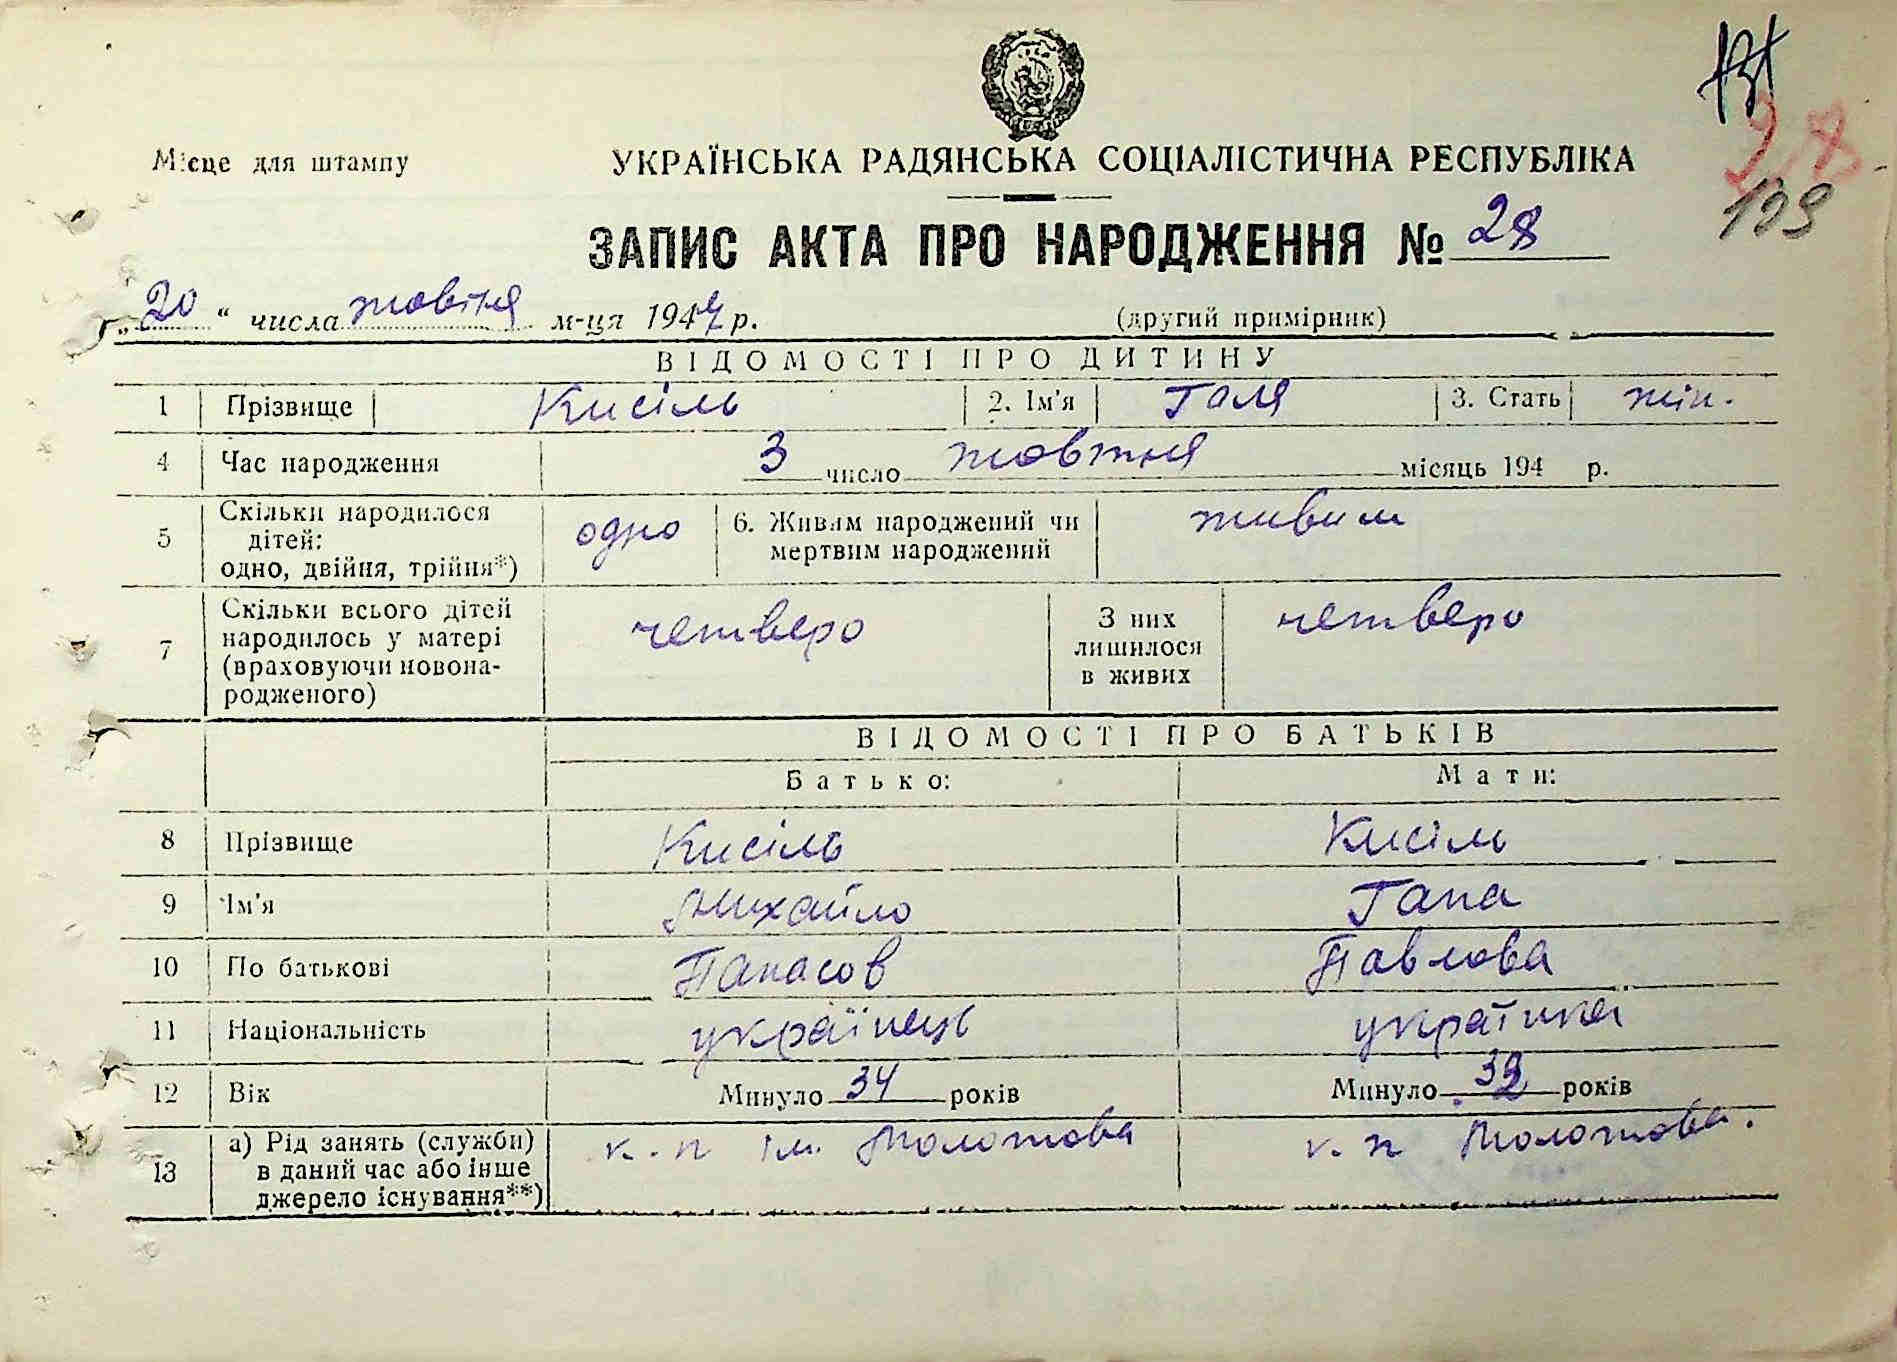 Місце для штампу
УКРАЇНСЬКА РАДЯНСЬКА СОЦІАЛІСТИЧНА РЕСПУБЛІКА
139
ЗАПИС АКТА ПРО НАРОДЖЕННЯ № 28
„20“ числа жовтня м-ця 1947 р. (другий примірник)
ВІДОМОСТІ ПРО ДИТИНУ
1 Прізвище Кисіль 2. Ім'я Галя 3. Стать жін.
4 Час народження 3 число жовтня місяць 194 р.
5 Скільки народилося дітей: одно, двійня, трійня*) одно 6. Живим народжений чи мертвим народжений живим
7 Скільки всього дітей народилось у матері (враховуючи новонародженого) четверо З них лишилося в живих четверо
ВІДОМОСТІ ПРО БАТЬКІВ
Батько: Мати:
8 Прізвище Кисіль Кисіль
9 Ім'я Михайло Гапа
10 По батькові Панасов Павлова
11 Національність українець українка
12 Вік Минуло 34 років Минуло років
13 а) Рід занять (служби) в даний час або інше джерело існування**) к.п ім. Молотова к.п Молотова.